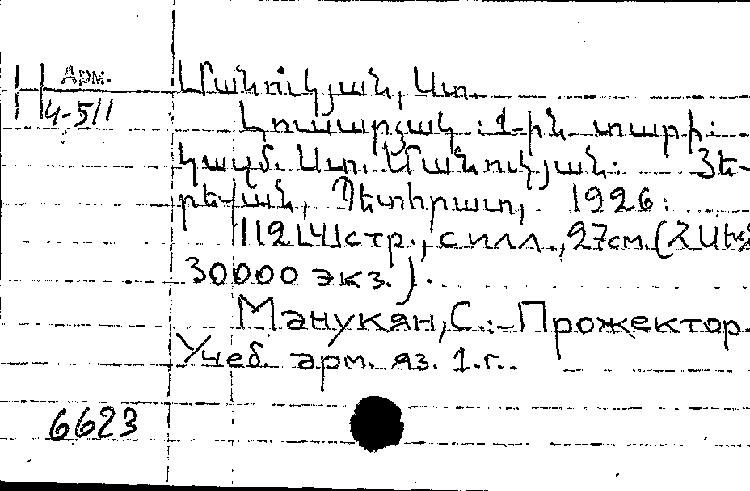 Арм.
4-511
Մանուկյան, Ստ.
Լուսարձակ: 1-ին տարի:
Կազմ. Ստ. Մանուկյան: Յե-
րևան, Պետհրատ, 1926:
112[4]стр., с илл., 27см. (ՀՍԽՀ
30000 экз.).
Манукян, С.:- Прожектор.
Учеб. арм. яз. 1.г..
6623